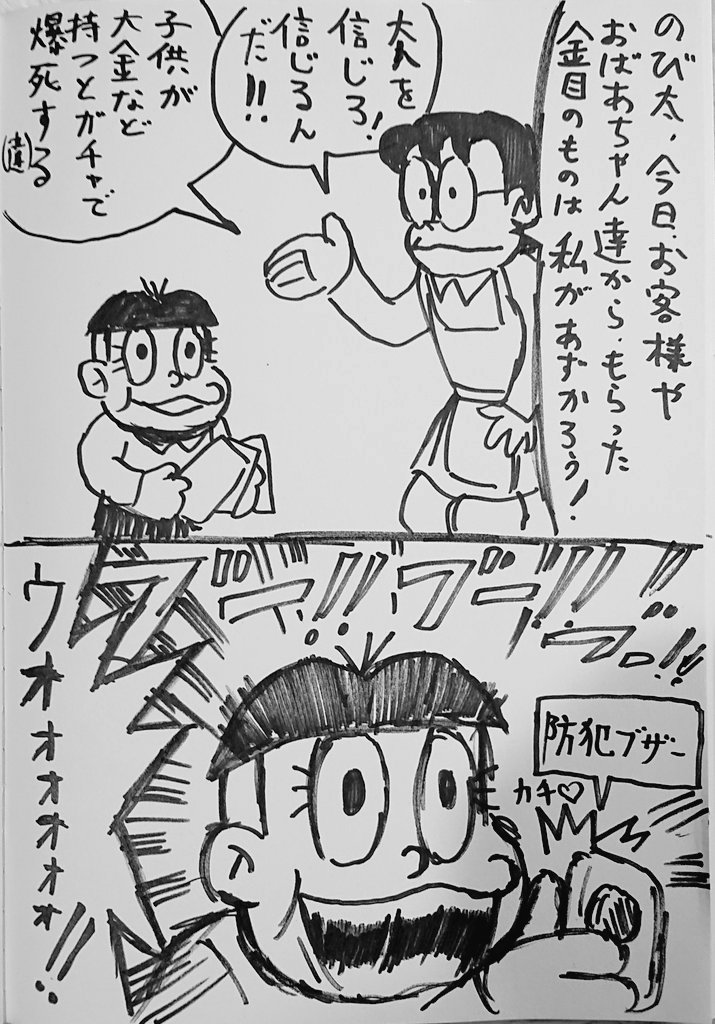 のび太、今日、お客様や
おばあちゃん達から、もらった
金目のものは私があずかろう!
大人を
信じろ!
信じるん
だ!!
子供が
大金など
持つとガチャで
爆死する
防犯ブザー
カチ♡
ウオォォォォォ!!